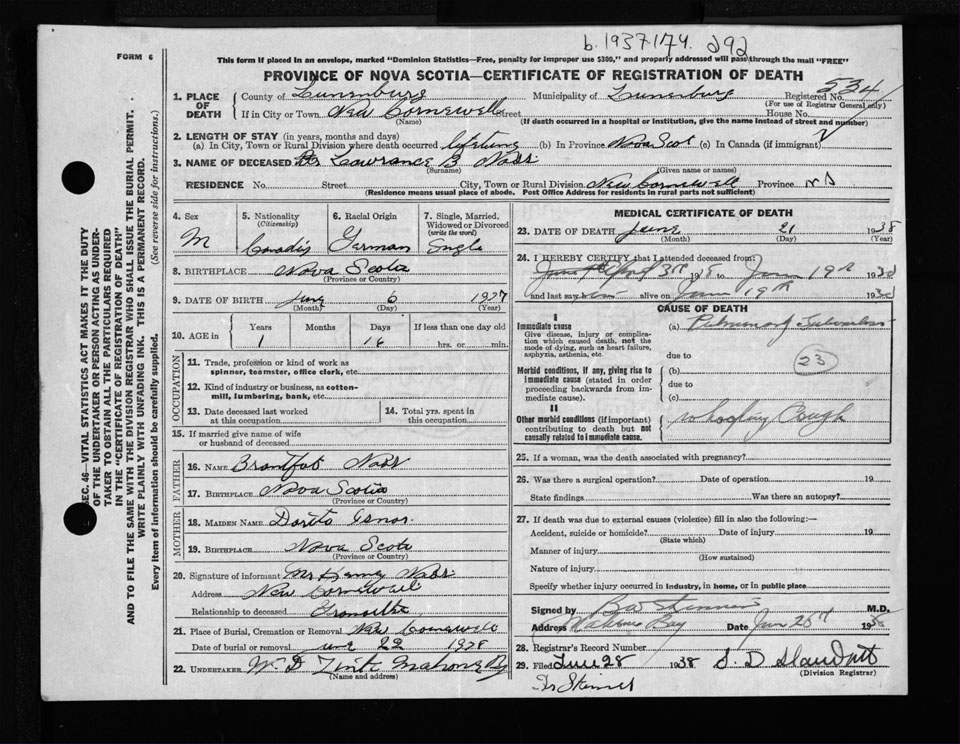 b. 1937174. 292
FORM 6
This form if placed in an envelope, marked "Dominion Statistics—Free, penalty for improper use $300," and properly addressed will pass through the mail "FREE"
PROVINCE OF NOVA SCOTIA—CERTIFICATE OF REGISTRATION OF DEATH
1. PLACE OF DEATH County of Lunenburg Municipality of Lunenburg Registered No. 534
(For use of Registrar General only)
If in City or Town New Cornewell Street House No.
(Name) (If death occurred in a hospital or institution, give the name instead of street and number)
2. LENGTH OF STAY (in years, months and days)
(a) In City, Town or Rural Division where death occurred lifetime (b) In Province Nova Scot (c) In Canada (if immigrant)
3. NAME OF DECEASED Lawrance B
(Surname) (Given name or names)
RESIDENCE No. Street City, Town or Rural Division New Cornewell Province N S
(Residence means usual place of abode. Post Office Address for residents in rural parts not sufficient)
SEC. 46—VITAL STATISTICS ACT MAKES IT THE DUTY
OF THE UNDERTAKER OR PERSON ACTING AS UNDER-
TAKER TO OBTAIN ALL THE PARTICULARS REQUIRED
IN THE "CERTIFICATE OF REGISTRATION OF DEATH"
AND TO FILE THE SAME WITH THE DIVISION REGISTRAR WHO SHALL ISSUE THE BURIAL PERMIT.
WRITE PLAINLY WITH UNFADING INK. THIS IS A PERMANENT RECORD.
Every item of information should be carefully supplied. (See reverse side for instructions.)
4. Sex M
5. Nationality (Citizenship) Canadis
6. Racial Origin German
7. Single, Married, Widowed or Divorced (write the word) Single
8. BIRTHPLACE Nova Scotia
(Province or Country)
9. DATE OF BIRTH 6 1937
(Month) (Day) (Year)
10. AGE in Years 1 Months Days 16 If less than one day old
hrs. or min.
OCCUPATION
11. Trade, profession or kind of work as
spinner, teamster, office clerk, etc.
12. Kind of industry or business, as cotton-
mill, lumbering, bank, etc.
13. Date deceased last worked
at this occupation
14. Total yrs. spent in
this occupation
15. If married give name of wife
or husband of deceased
FATHER
16. NAME
17. BIRTHPLACE Nova Scotia
(Province or Country)
MOTHER
18. MAIDEN NAME
19. BIRTHPLACE Nova Scotia
(Province or Country)
20. Signature of informant Mr
Address New Cornewell
Relationship to deceased
21. Place of Burial, Cremation or Removal New Cornewell
Date of burial or removal June 22 1938
22. UNDERTAKER W. D Mahone By
(Name and address)
MEDICAL CERTIFICATE OF DEATH
23. DATE OF DEATH June 21 1938
(Month) (Day) (Year)
24. I HEREBY CERTIFY that I attended deceased from:
April 3rd 1938 to June 19th 1938
and last saw him alive on June 19th 1938
CAUSE OF DEATH
I
Immediate cause
Give disease, injury or complica-
tion which caused death, not the
mode of dying, such as heart failure,
asphyxia, asthenia, etc.
(a) Pulmonary Tuberculosis
due to
23
Morbid conditions, if any, giving rise to
immediate cause (stated in order
proceeding backwards from im-
mediate cause).
(b)
due to
(c)
II
Other morbid conditions (if important)
contributing to death but not
causally related to immediate cause.
Whooping Cough
25. If a woman, was the death associated with pregnancy?
26. Was there a surgical operation? Date of operation 19
State findings Was there an autopsy?
27. If death was due to external causes (violence) fill in also the following:—
Accident, suicide or homicide? Date of injury 19
(State which)
Manner of injury
(How sustained)
Nature of injury
Specify whether injury occurred in industry, in home, or in public place
Signed by M.D.
Address Mahone Bay Date June 28th 1938
28. Registrar's Record Number
29. Filed June 28 1938 S. D
(Division Registrar)